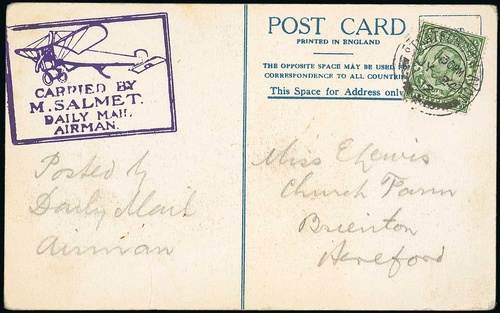 CARRIED BY
M. SALMET.
DAILY MAIL
AIRMAN.
Posted by
Daily Mail
airman
POST CARD
PRINTED IN ENGLAND
THE OPPOSITE SPACE MAY BE USED
CORRESPONDENCE TO ALL COUNTRIE
This Space for Address only
Miss E Lewis
Church Farm
Breinton
Hereford